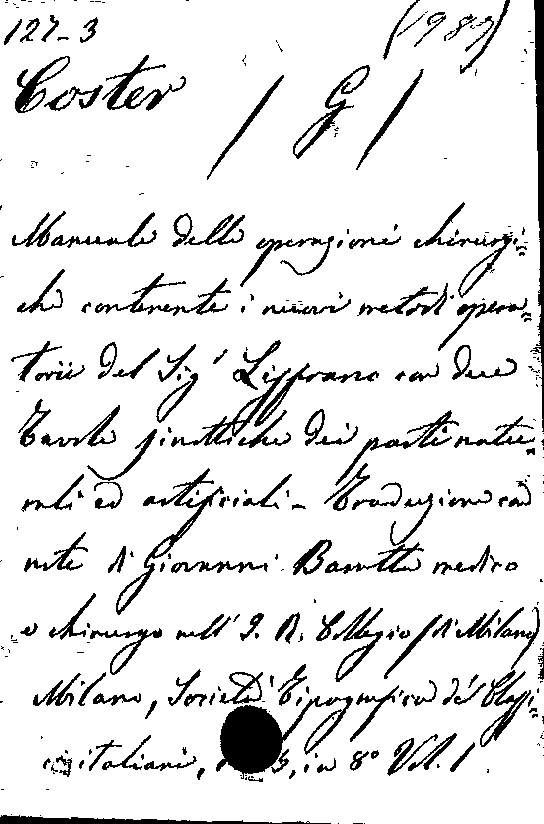 127-3 (1989)
Coster / G /
Manuale delle operazioni chirurgi=
che contenente i nuovi metodi opera=
torii del Sig.r Lisfranc con due
Tavole sinottiche dei parti natu=
rali ed artificiali - Traduzione con
note di Giovanni Barotta medico
e chirurgo nell' I. R. Collegio (di Milano)
Milano, Società Tipografica de' Classi=
ci italiani, in 8° Vol. 1.